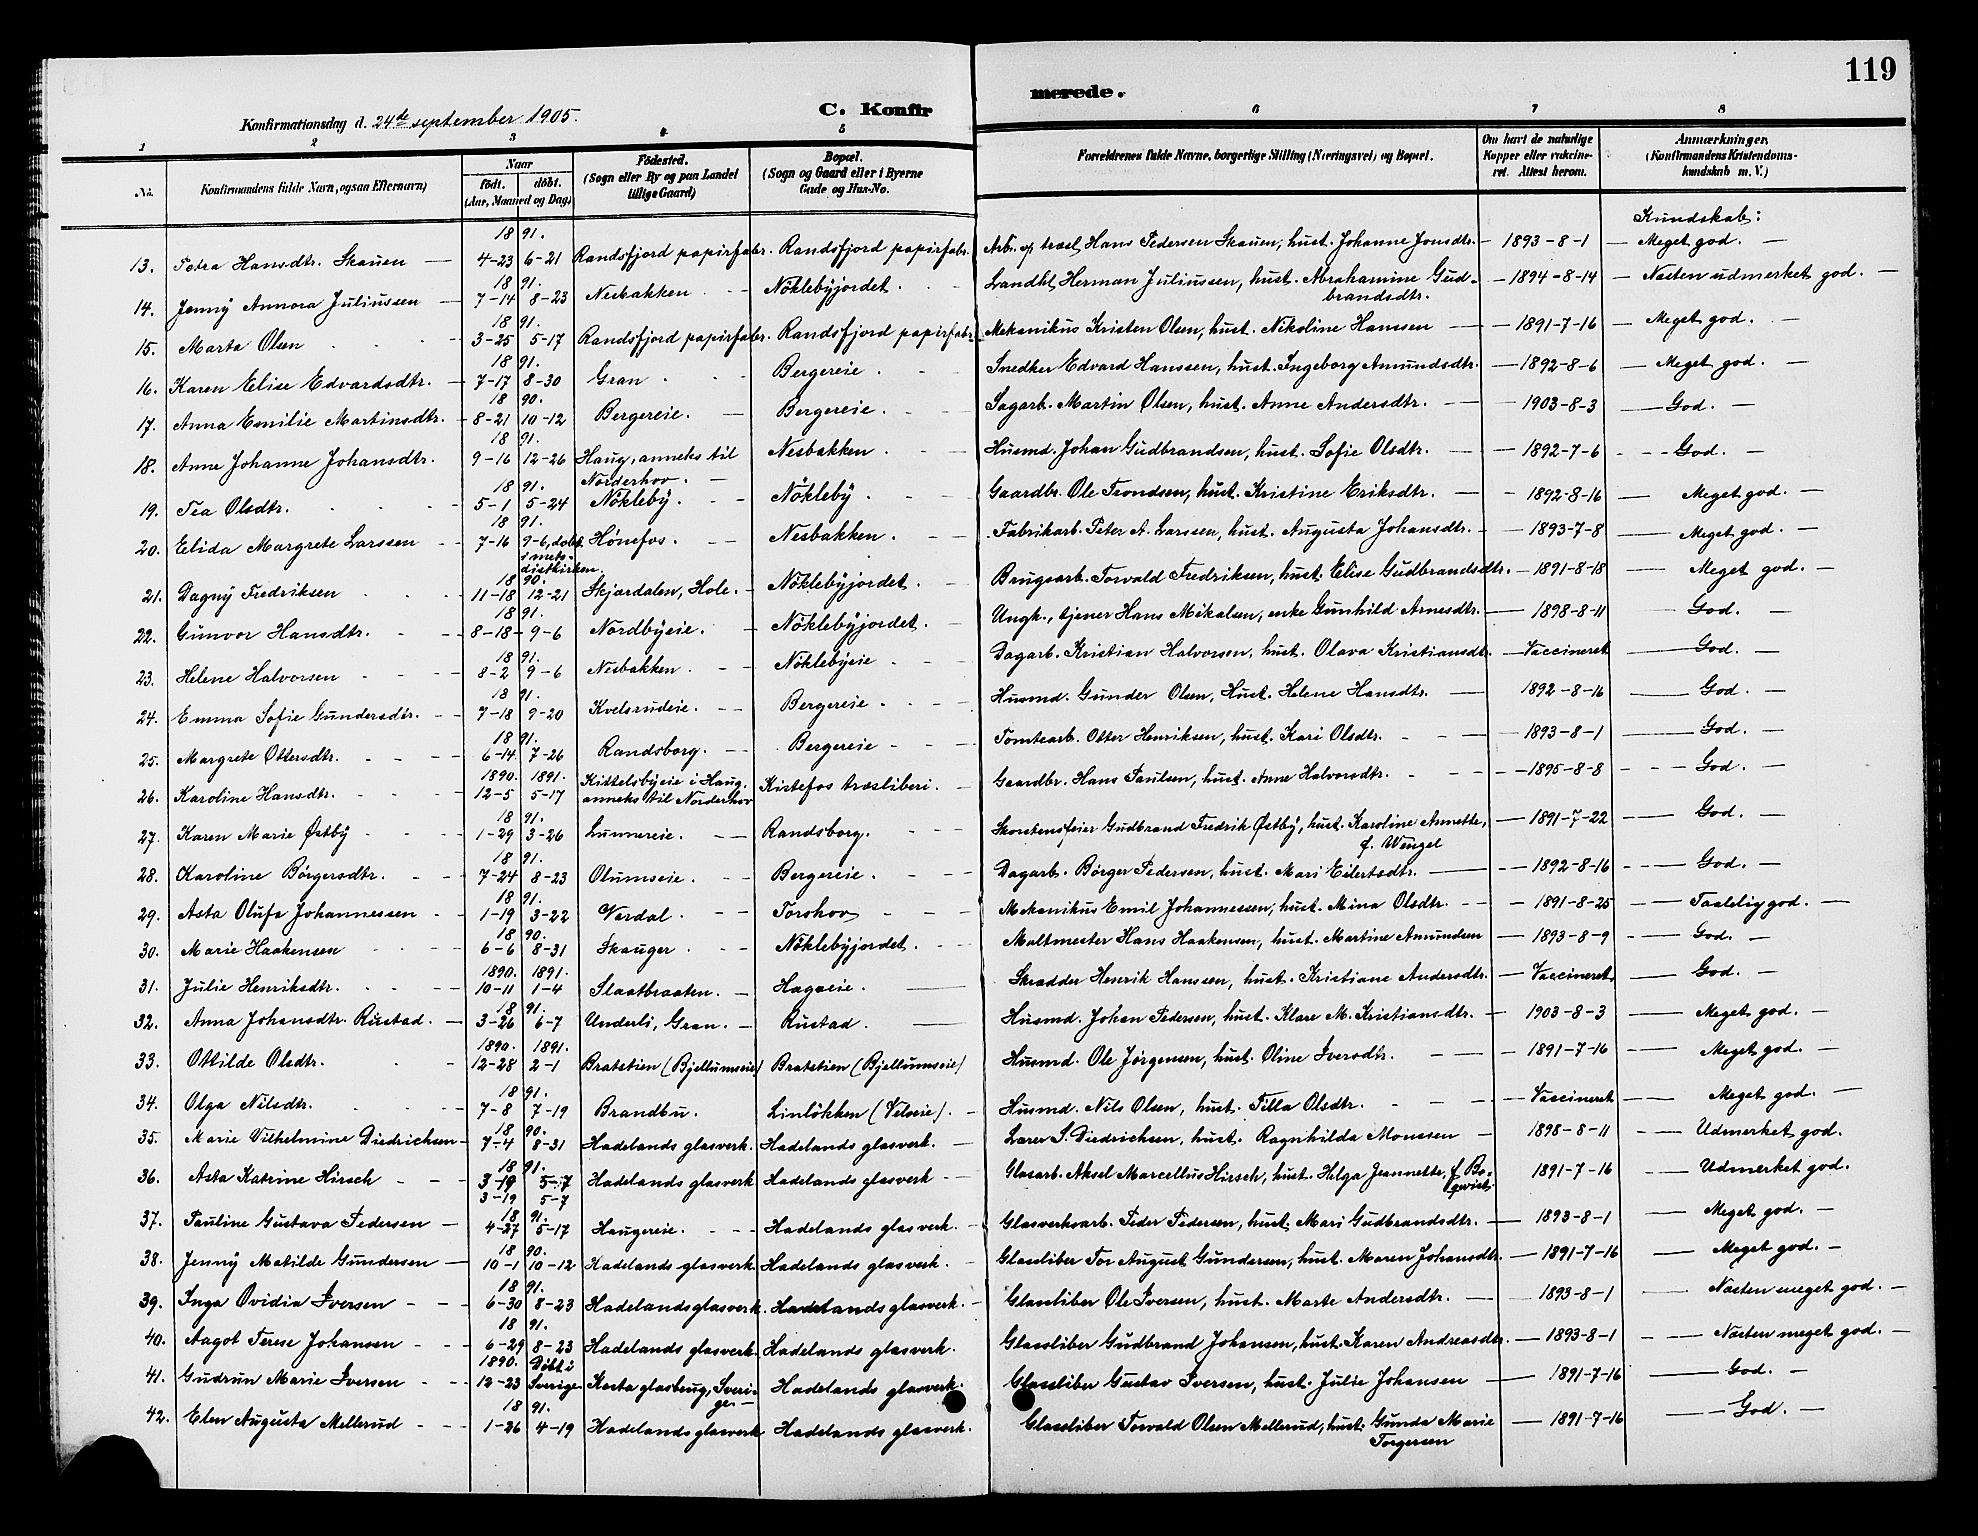 119
C. Konfirmerede.
Konfirmationsdag d. 24de september 1905.
1 2 3 4 5 6 7 8
No. Konfirmandens fulde Navn, ogsaa Efternavn) Naar födt. döbt. (Aar, Maaned og Dag) Födested. (Sogn eller By og paa Landet tillige Gaard) Bopæl. (Sogn og Gaard eller i Byerne Gade og Hus-No. Forældrenes fulde Navne, borgerlige Stilling (Næringsvei) og Bopæl. Om havt de naturlige Kopper eller vakcineret. Attest herom. Anmærkninger, (Konfirmandens Kristendomskundskab m. V.)
Kundskab:
13. Petra Hansdtr. Skauen — 1891. 4-23 6-21 Randsfjord papirfabr. Randsfjord papirfabr. Arb. og træsl. Hans Pedersen Skauen, hust. Johanne Jonsdtr. — 1893-8-1 — Meget god. —
14. Jenny Annora Juliussen — 1891. 7-14 8-23 Nesbakken. Nöklebyjordet. Landhl. Herman Juliussen, hust. Abrahamine Gudbrandsdtr. — 1894-8-14 — Næsten udmerket god. —
15. Marta Olsen 1891. 3-25 5-17 Randsfjord papirfabr. Randsfjord papirfabr. Mekanikus Kristen Olsen, hust. Nikoline Hanssen — 1891-7-16 — Meget god. —
16. Karen Elise Edvardsdtr. — 1891. 7-17 8-30 Gran. Bergereie. Snedker Edvard Hanssen, hust. Ingeborg Amundsdtr. — 1892-8-6 — Meget god. —
17. Anna Emilie Martinsdtr. — 1890. 8-21 10-12 Bergereie. — Bergereie. Sagarb. Martin Olsen, hust. Anne Andersdtr. — 1903-8-3 — God. —
18. Anne Johanne Johansdtr. 1891. 9-16 12-26 Haug, anneks til Norderhov. — Nesbakken. Husmd. Johan Gudbrandsen, hust. Sofie Olsdtr. — 1892-7-6 — God. —
19. Tea Olsdtr. 1891. 5-1 5-24 Nökleby. Nökleby. Gaardbr. Ole Trondsen, hust. Kristine Eriksdtr. — 1892-8-16 — Meget god. —
20. Elida Margrete Larssen 1891. 7-16 9-6, döbt i metodistkirken. Hönefos. Nesbakken. Fabrikarb. Peter A. Larssen, hust. Augusta Johansdtr. — 1893-7-8 — Meget god. —
21. Dagny Fredriksen 1890. 11-18 12-21 Skjærdalen, Hole. Nöklebyjordet. Brugsarb. Torvald Fredriksen, hust. Elise Gudbrandsdtr. — 1891-8-18 — Meget god. —
22. Gunvor Hansdtr. 1891. 8-18 9-6 Nordbyeie. Nöklebyjordet. Ungk., tjener Hans Mikalsen, enke Gunhild Arnesdtr. — 1898-8-11 — God. —
23. Helene Halvorsen 1891. 8-2 9-6 Nesbakken. Nöklebyeie Dagarb. Kristian Halvorsen, hust. Olava Kristiansdtr. — Vaccineret — God. —
24. Emma Sofie Gundersdtr. 1891. 7-18 9-20 Kvelsrudeie. Bergereie. Husmd. Gunder Olsen, Hust. Helene Hansdtr. — 1892-8-16 — God. —
25. Margrete Ottersdtr. 1891. 6-14 7-26 Randsborg. Bergereie Tomtearb. Otter Henriksen, hust. Kari Olsdtr. — 1893-8-1 — God. —
26. Karoline Hansdtr. 1890. 1891. 12-5 5-17 Kittelsbyeie i Haug, anneks til Norderhov Kistefos træsliberi. Gaardbr. Hans Paulsen, hust. Anne Halvorsdtr. — 1895-8-8 — God. —
27. Karen Marie Østby 1891. 1-29 3-26 Lunnereie. Randsborg. Skorstensfeier Gudbrand Fredrik Østby, hust. Karoline Annette, f. Wengel — 1891-7-22 — God. —
28. Karoline Börgersdtr. 1891. 7-24 8-23 Olumseie. Bergereie. Dagarb. Börger Pedersen, hust. Mari Eilertsdtr. — 1892-8-16 — God. —
29. Asta Olufa Johannessen 1891. 1-19 3-22 Verdal. Torohov Mekanikus Emil Johannessen, hust. Mina Olsdtr. — 1891-8-25 — Taalelig god. —
30. Marie Haakensen 1890. 6-6 8-31 Skauger. Nöklebyjordet. Maltmester Hans Haakensen, hust. Martine Amundsen — 1893-8-9 — God. —
31. Julie Henriksdtr. 1890. 1891. 10-11 1-4 Slaatbraaten. Hagaeie. Skrædder Henrik Hanssen, hust. Kristiane Andersdtr. — Vaccineret — God. —
32. Anna Johansdtr. Rustad. — 1891. 3-26 6-7 Underli, Gran. Rustad. Husmd. Johan Pedersen, hust. Klare M. Kristiansdtr. — 1903-8-3 — Meget god. —
33. Ottilde Olsdtr. 1890. 1891. 12-28 2-1 Bratstien (Bjellumseie) Bratstien (Bjellumseie) Husmd. Ole Jörgensen, hust. Oline Iversdtr. — 1891-7-16 — Meget god. —
34. Olga Nilsdtr. 1891. 7-8 7-19 Brandbu. Linlökken (Velseie). Husmd. Nils Olsen, hust. Tilla Olsdtr. — Vaccineret — Meget god. —
35. Marie Vilhelmine Diedrichsen — 1890. 7-4 8-31 Hadelands glasverk. Hadelands glasverk. Lærer S. Diedrichsen, hust. Ragnhilda Monssen — 1898-8-11 — Udmerket god.
36. Asta Katrine Hirsch 1891. 3-19 5-7 3-19 5-7 Hadelands glasverk Hadelands glasverk Glasarb. Aksel Marcellus Hirsch, hust. Helga Jeannette, f. Boqvist. 1891-7-16 — Udmerket god.
37. Pauline Gustava Pedersen — 1891. 4-27 5-17 Haugereie. Hadelands glasverk. Glasverksarb. Peder Pedersen, hust. Mari Gudbrandsdtr. — 1893-8-1 — Meget god. —
38. Jenny Matilde Gundersen — 1890. 10-1 10-12 Hadelands glasverk. Hadelands glasverk. Glassliber Tor August Gundersen, hust. Maren Johansdtr. — 1891-7-16 — Meget god. —
39. Inga Ovidia Iversen 1891. 6-30 8-23 Hadelands glasverk. Hadelands glasverk. Glassliber Ole Iversen, hust. Marte Andersdtr. — 1893-8-1 — Næsten meget god. —
40. Aagot Terese Johansen 1891. 6-29 8-23 Hadelands glasverk. Hadelands glasverk. Glassliber Gudbrand Johansen, hust. Karen Andreasdtr. — 1893-8-1 — Næsten meget god. —
41. Gudrun Marie Iversen 1890. 12-23 Döbt i Sverige. Kosta glasbrug, Sverige. — Hadelands glasverk. Glassliber Gustav Iversen, hust. Julie Johansen — 1891-7-16 — God. —
42. Elen Augusta Mellerud 1891. 1-26 4-19 Hadelands glasverk Hadelands glasverk. Glassliber Torvald Olsen Mellerud, hust. Gunda Marie Torgersen — 1891-7-16 — God. —